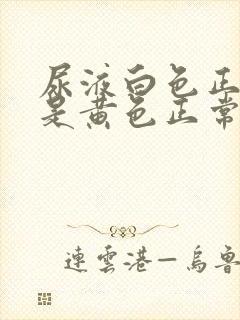 尿液白色正
是黄色正常
連雲港—烏魯